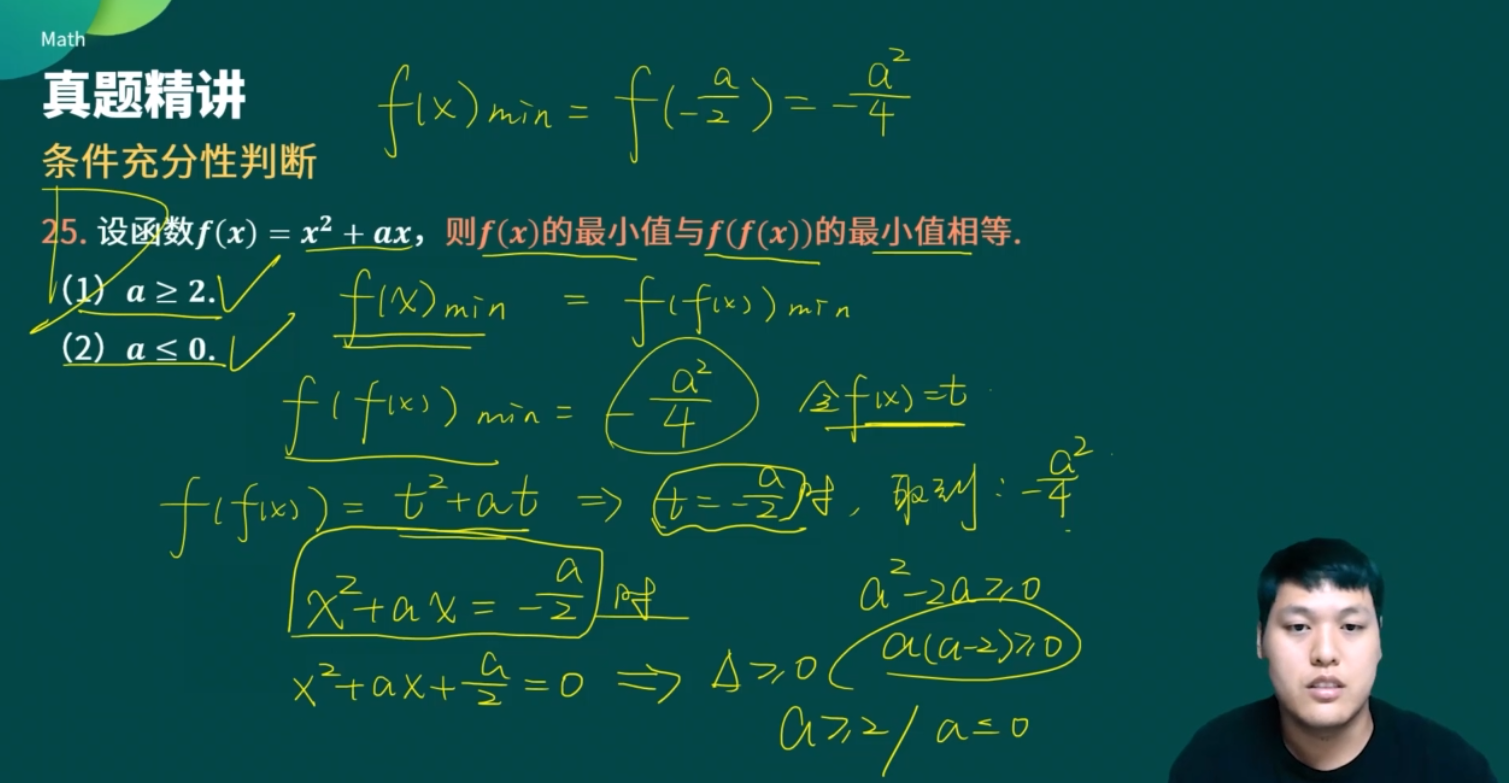 Math
真题精讲
条件充分性判断
f(x)min = f(-a/2) = -a²/4
D
25. 设函数f(x) = x² + ax，则f(x)的最小值与f(f(x))的最小值相等.
(1) a ≥ 2. ✓
(2) a ≤ 0. ✓
f(x)min = f(f(x))min
f(f(x))min = -a²/4 令f(x)=t
f(f(x)) = t²+at ⇒ t=-a/2时, 取到: -a²/4
x²+ax = -a/2时
x²+ax+a/2=0 ⇒ Δ≥0
a²-2a≥0
a(a-2)≥0
a≥2/a≤0